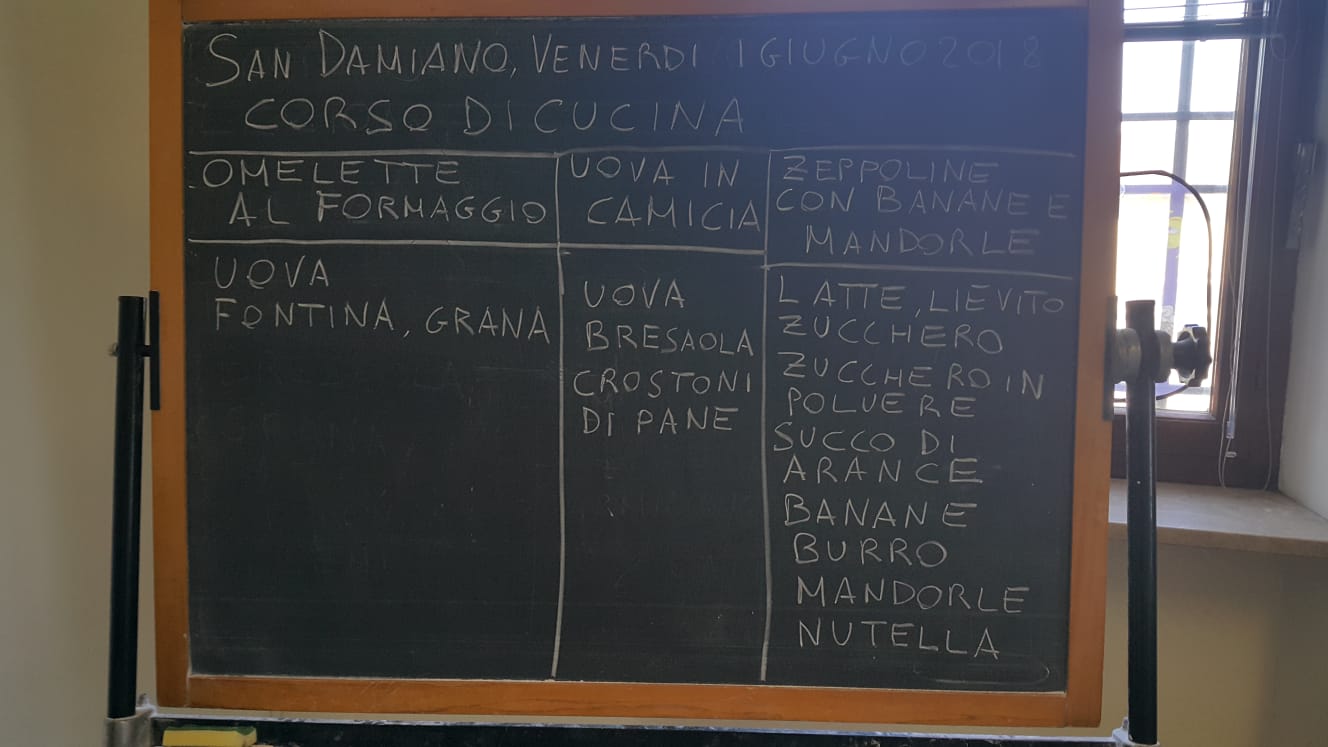 SAN DAMIANO, VENERDI 1 GIUGNO 2018
CORSO DI CUCINA
OMELETTE
AL FORMAGGIO
UOVA IN
CAMICIA
ZEPPOLINE
CON BANANE E
MANDORLE
UOVA
FONTINA, GRANA
UOVA
BRESAOLA
CROSTONI
DI PANE
LATTE, LIEVITO
ZUCCHERO
ZUCCHERO IN
POLVERE
SUCCO DI
ARANCE
BANANE
BURRO
MANDORLE
NUTELLA